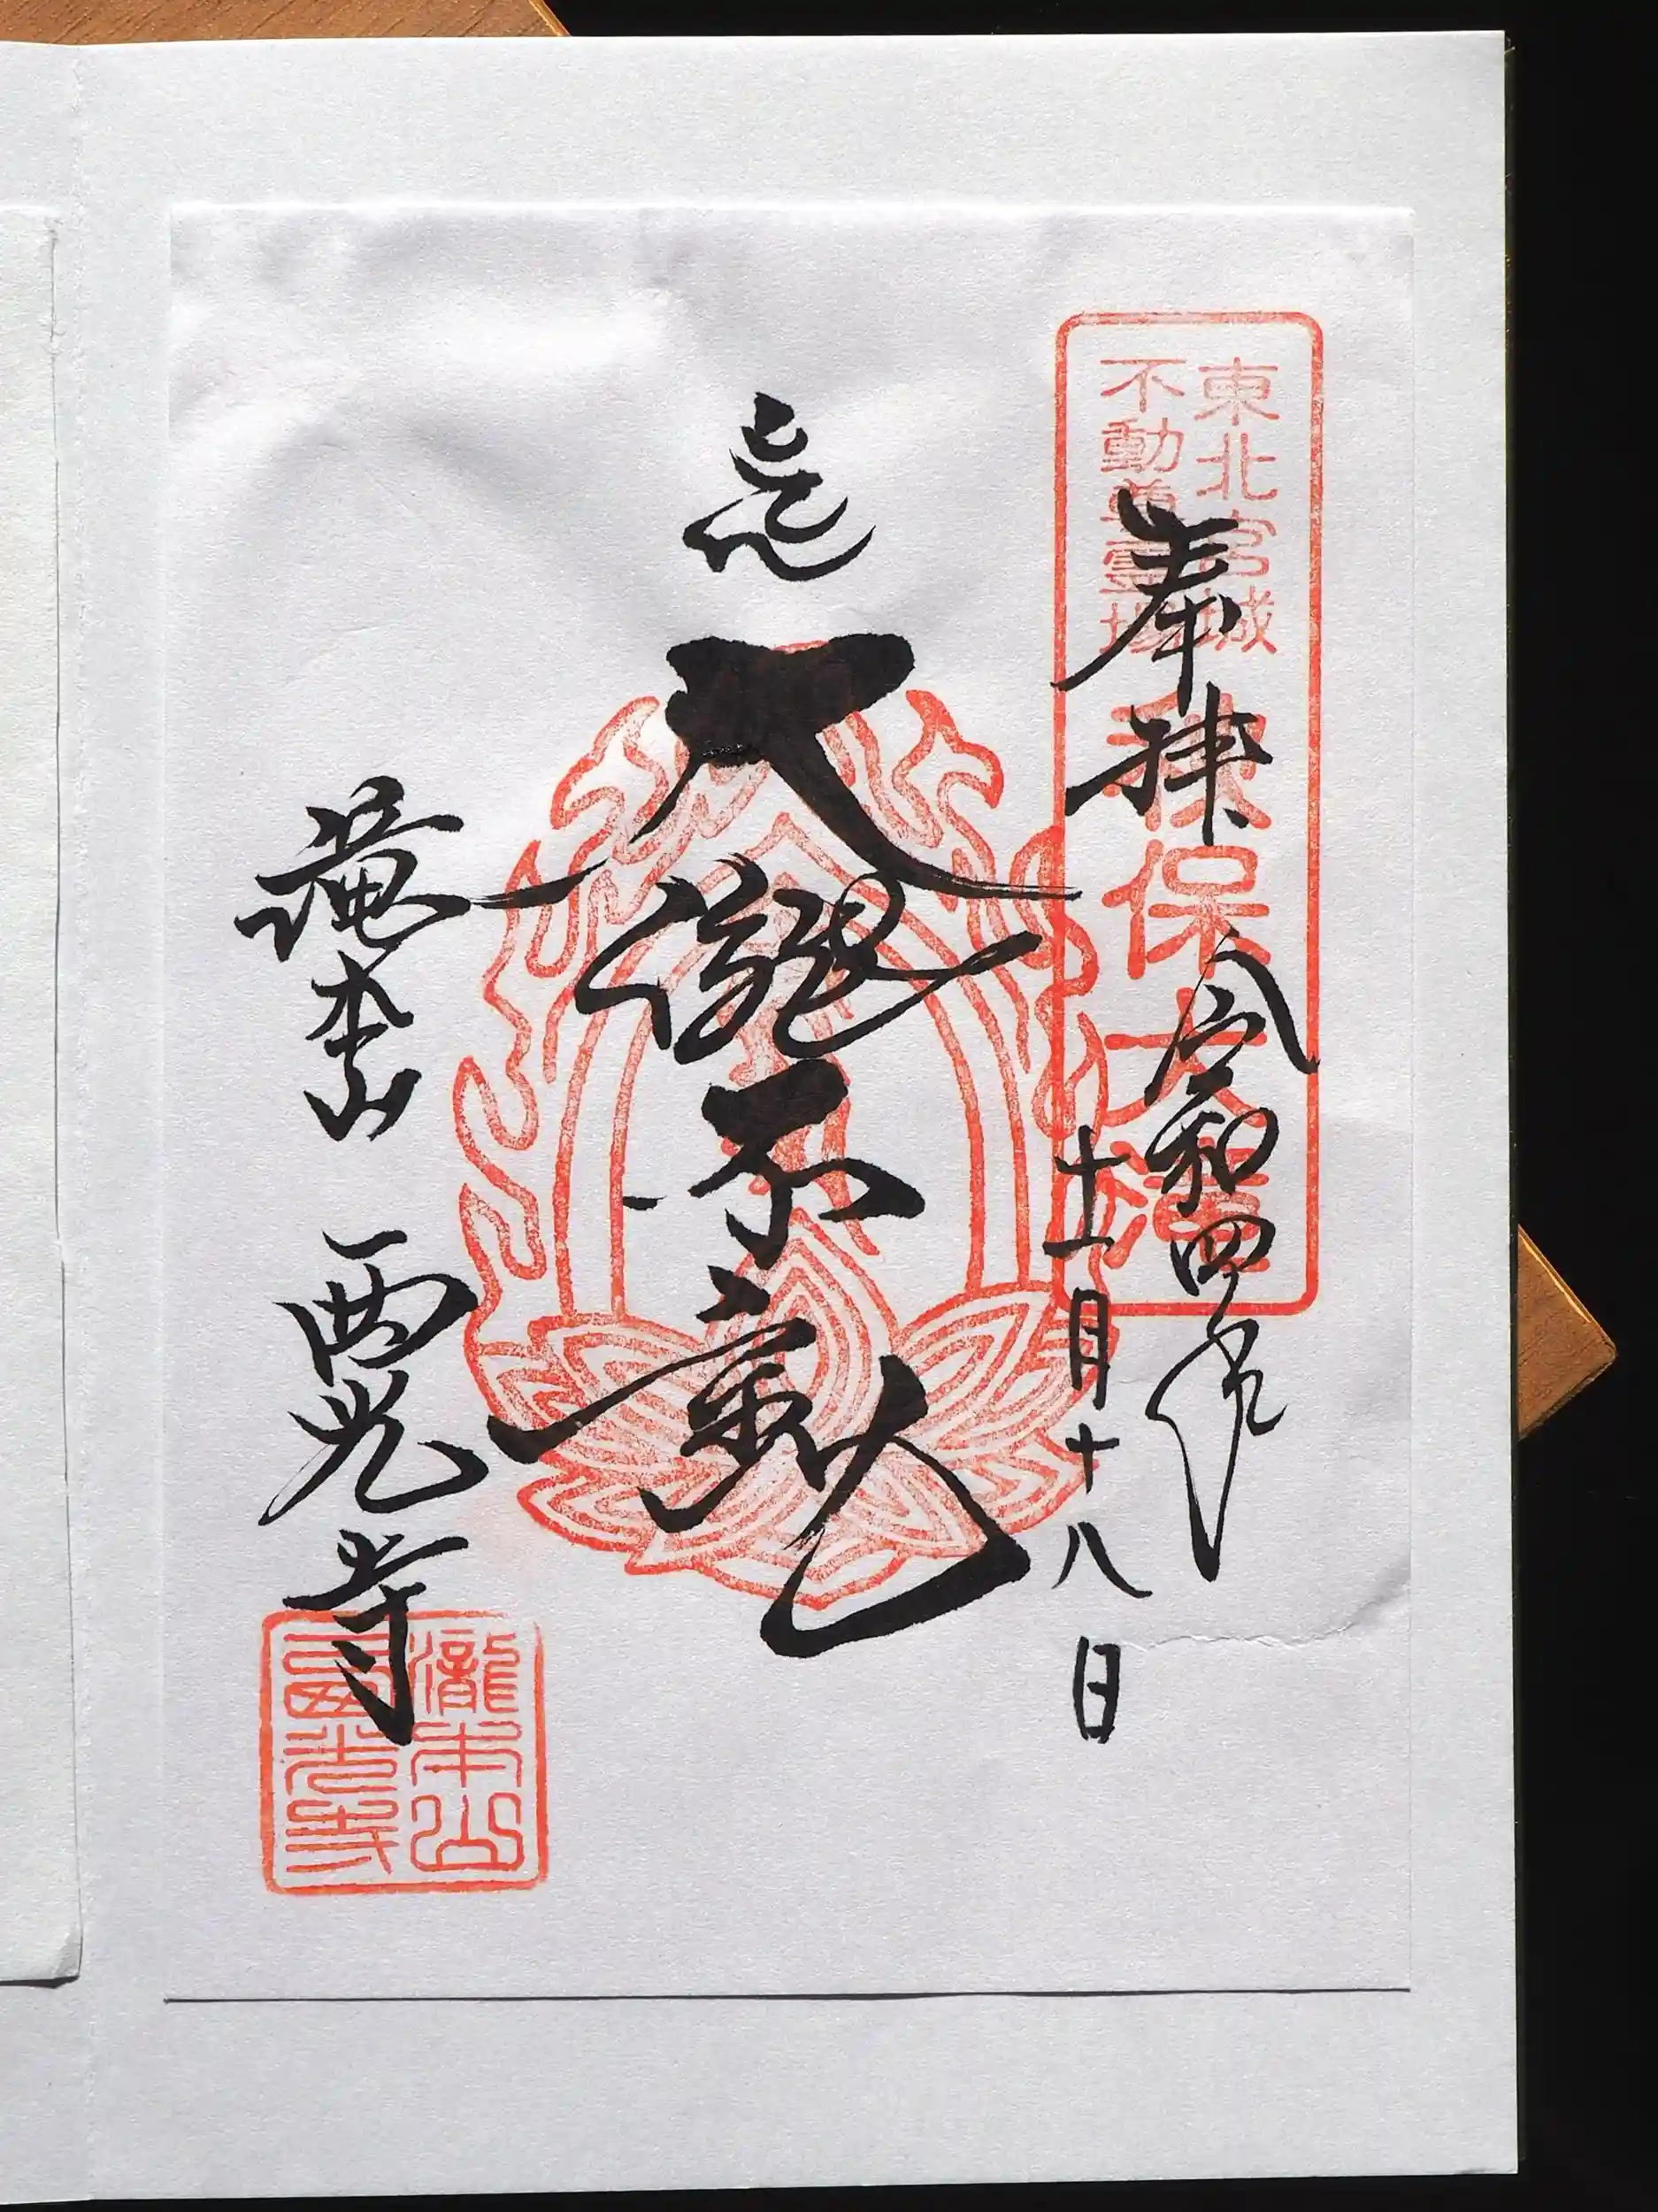 東北宮城
不動尊霊場
秋保大瀧
奉拝
令和四年
十一月十八日
大瀧不動
瀧本山 西光寺
瀧本山
西光寺